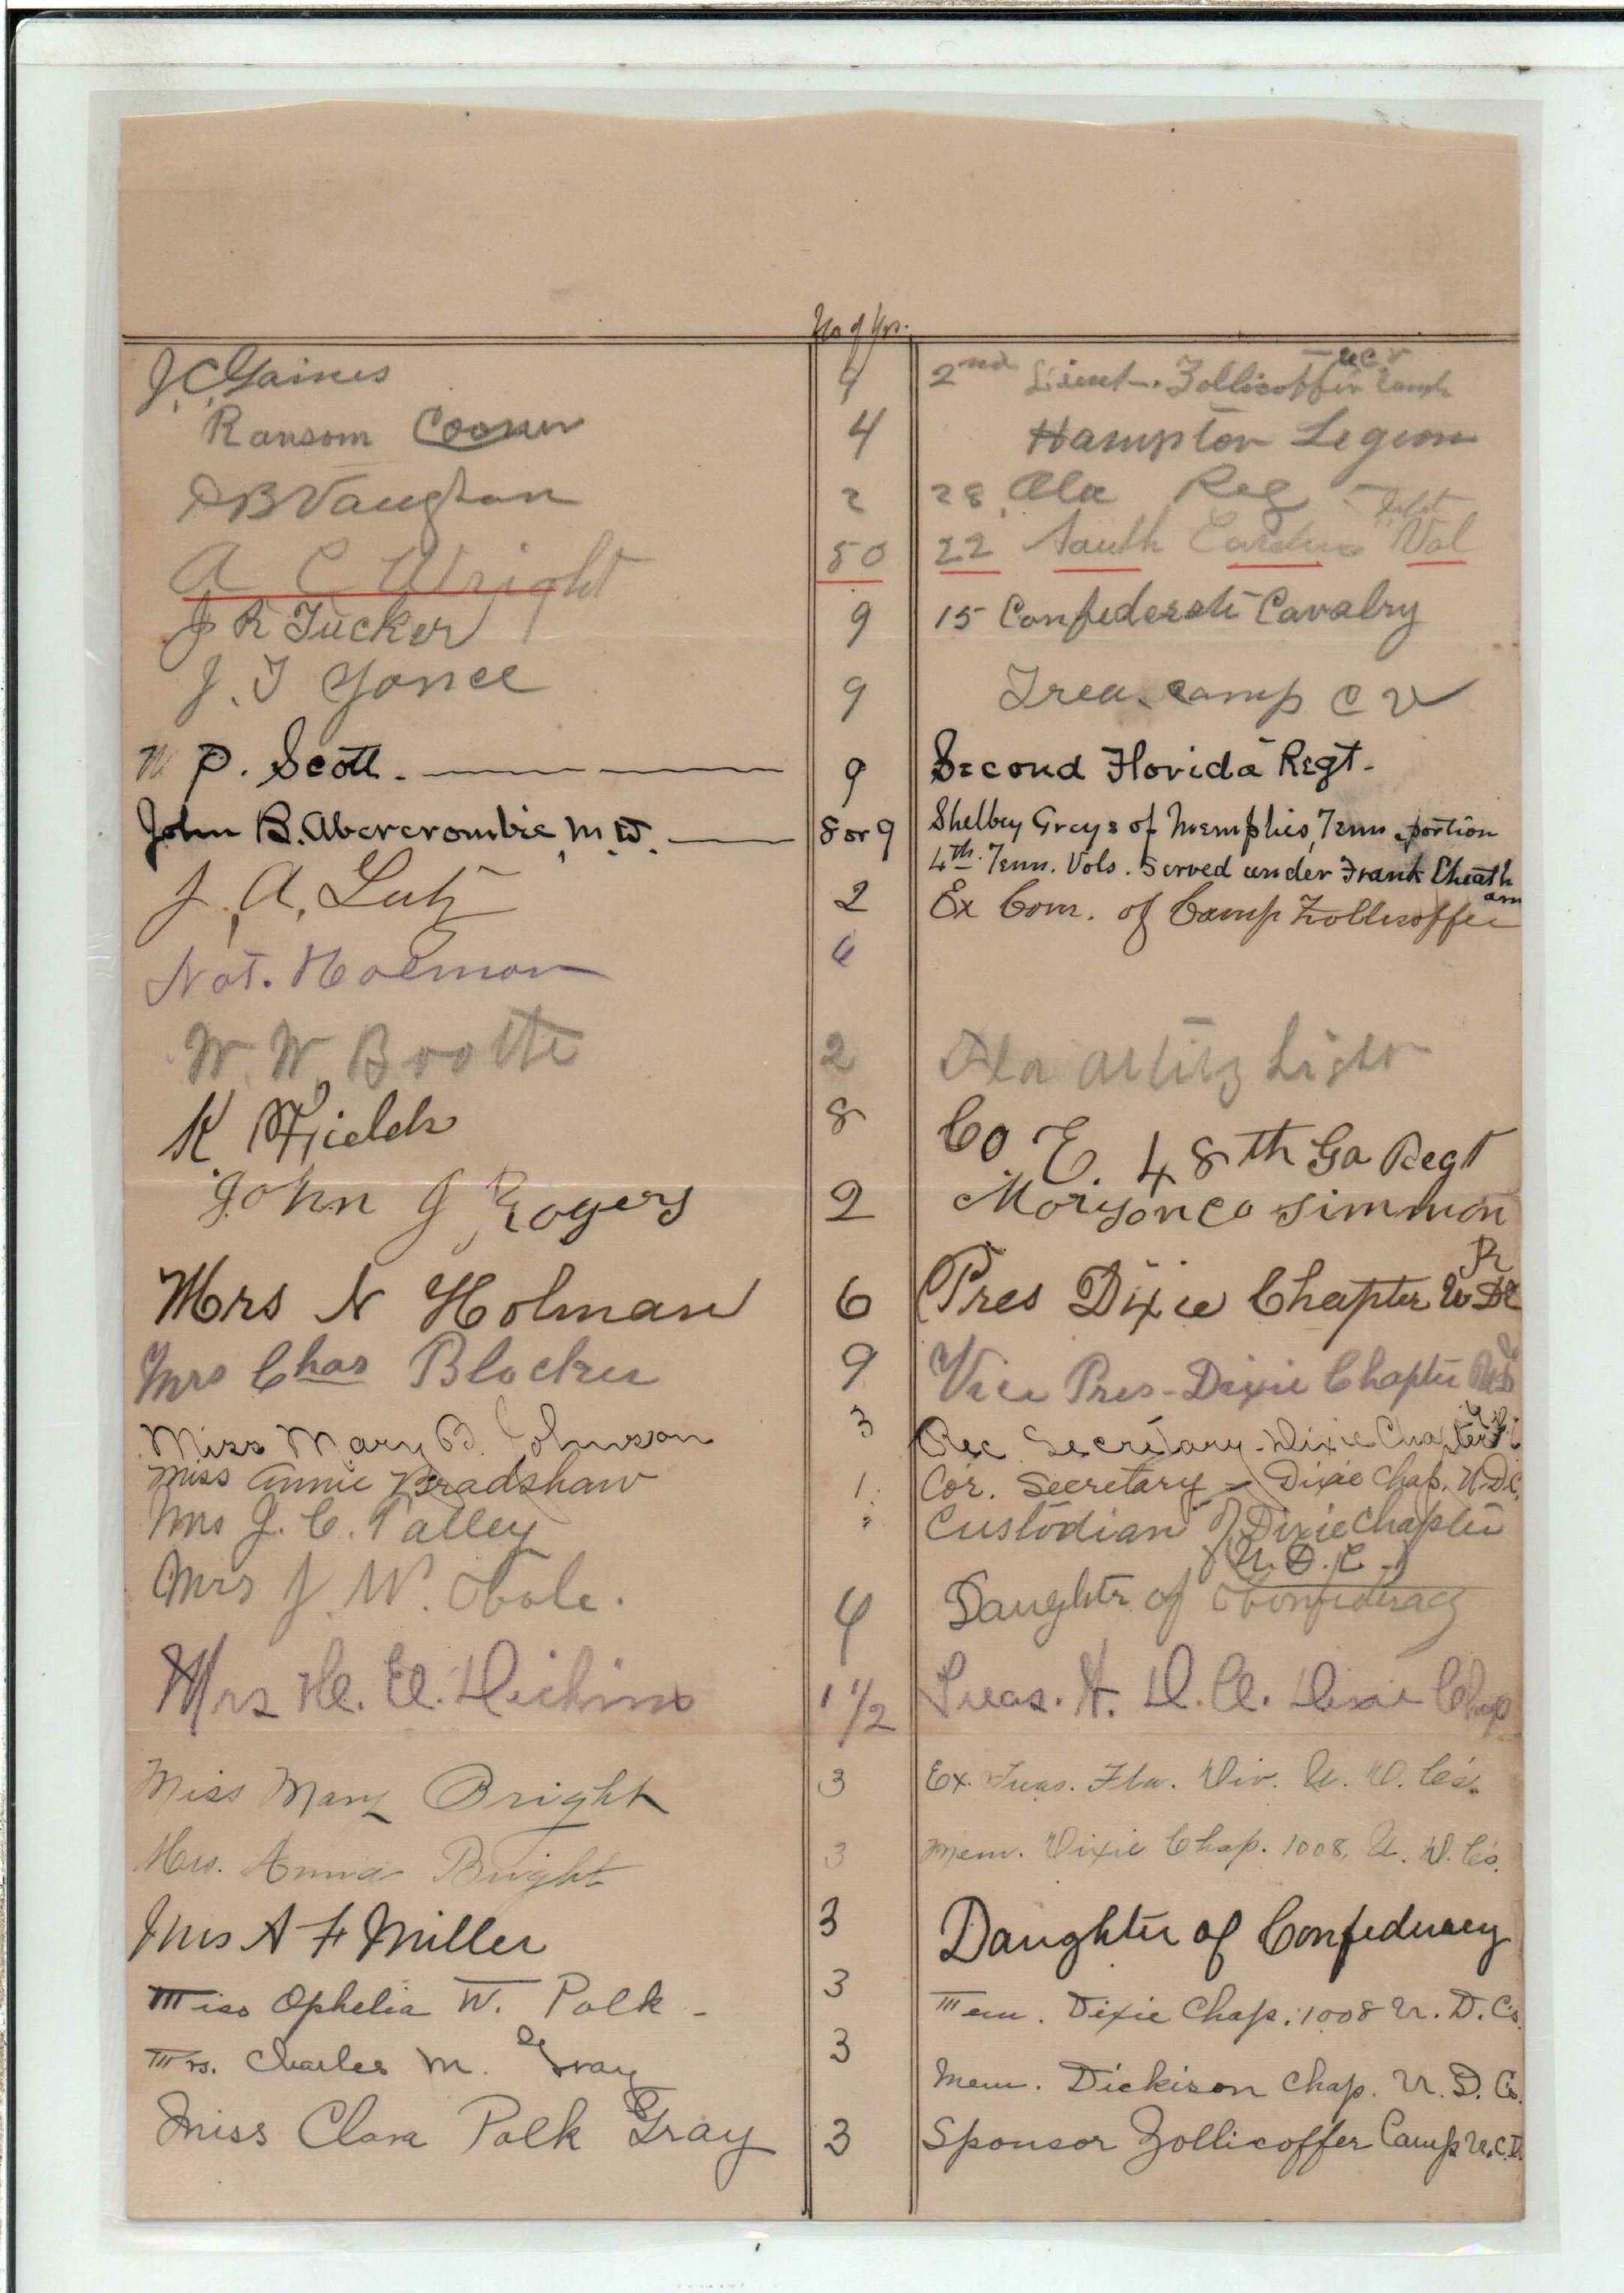 No of Yrs.
J.C. Gaines 9 2nd Lieut. Zollicoffer Camp UCV
Ransom Cooner 4 Hampton Legion
D B Vaughan 2 28 Ala Reg
A C Wright 50 22 South Carolina Vol
J R Tucker 9 15 Confederate Cavalry
J. T Yonce 9 Trea. camp C V
W P. Scott. 9 Second Florida Regt.
John B. Abercrombie, M.D. 8 or 9 Shelby Greys of Memphis, Tenn portion
4th Tenn. Vols. Served under Frank Cheatham
J. A. Lutz 2 Ex Com. of Camp Zollicoffer
Nat. Holman 6
W. W. 2 Fla Light
K Fields 8 Co E. 48th Ga Regt
John J Rogers 2 Co
Mrs N Holman 6 Pres Dixie Chapter
Mrs Chas Blocker 9 Vice Pres - Dixie Chapter
Miss Mary B. Johnson 3 Rec Secretary - Dixie Chapter
Miss Annie Bradshaw 1 Cor. Secretary - Dixie Chap. U.D.C.
Mrs J. C. Talley " Custodian of Dixie Chapter
U. D. C.
Mrs J. W. 4 Daughter of Confederacy
Mrs 1 1/2 Treas. Dixie Chap
Miss Mary Bright 3 Ex. Treas. Fla. Div. U. D. C's.
Mrs. Anna Bright 3 Mem. Dixie Chap. 1008, U. D. C's.
Mrs A F Miller 3 Daughter of Confederacy
Miss Ophelia W. Polk - 3 Mem. Dixie Chap. 1008 U. D. C's.
Mrs. Charles M. Gray 3 Mem. Dickison Chap. U. D. Cs.
Miss Clara Polk Gray 3 Sponsor Zollicoffer Camp U.C.V.